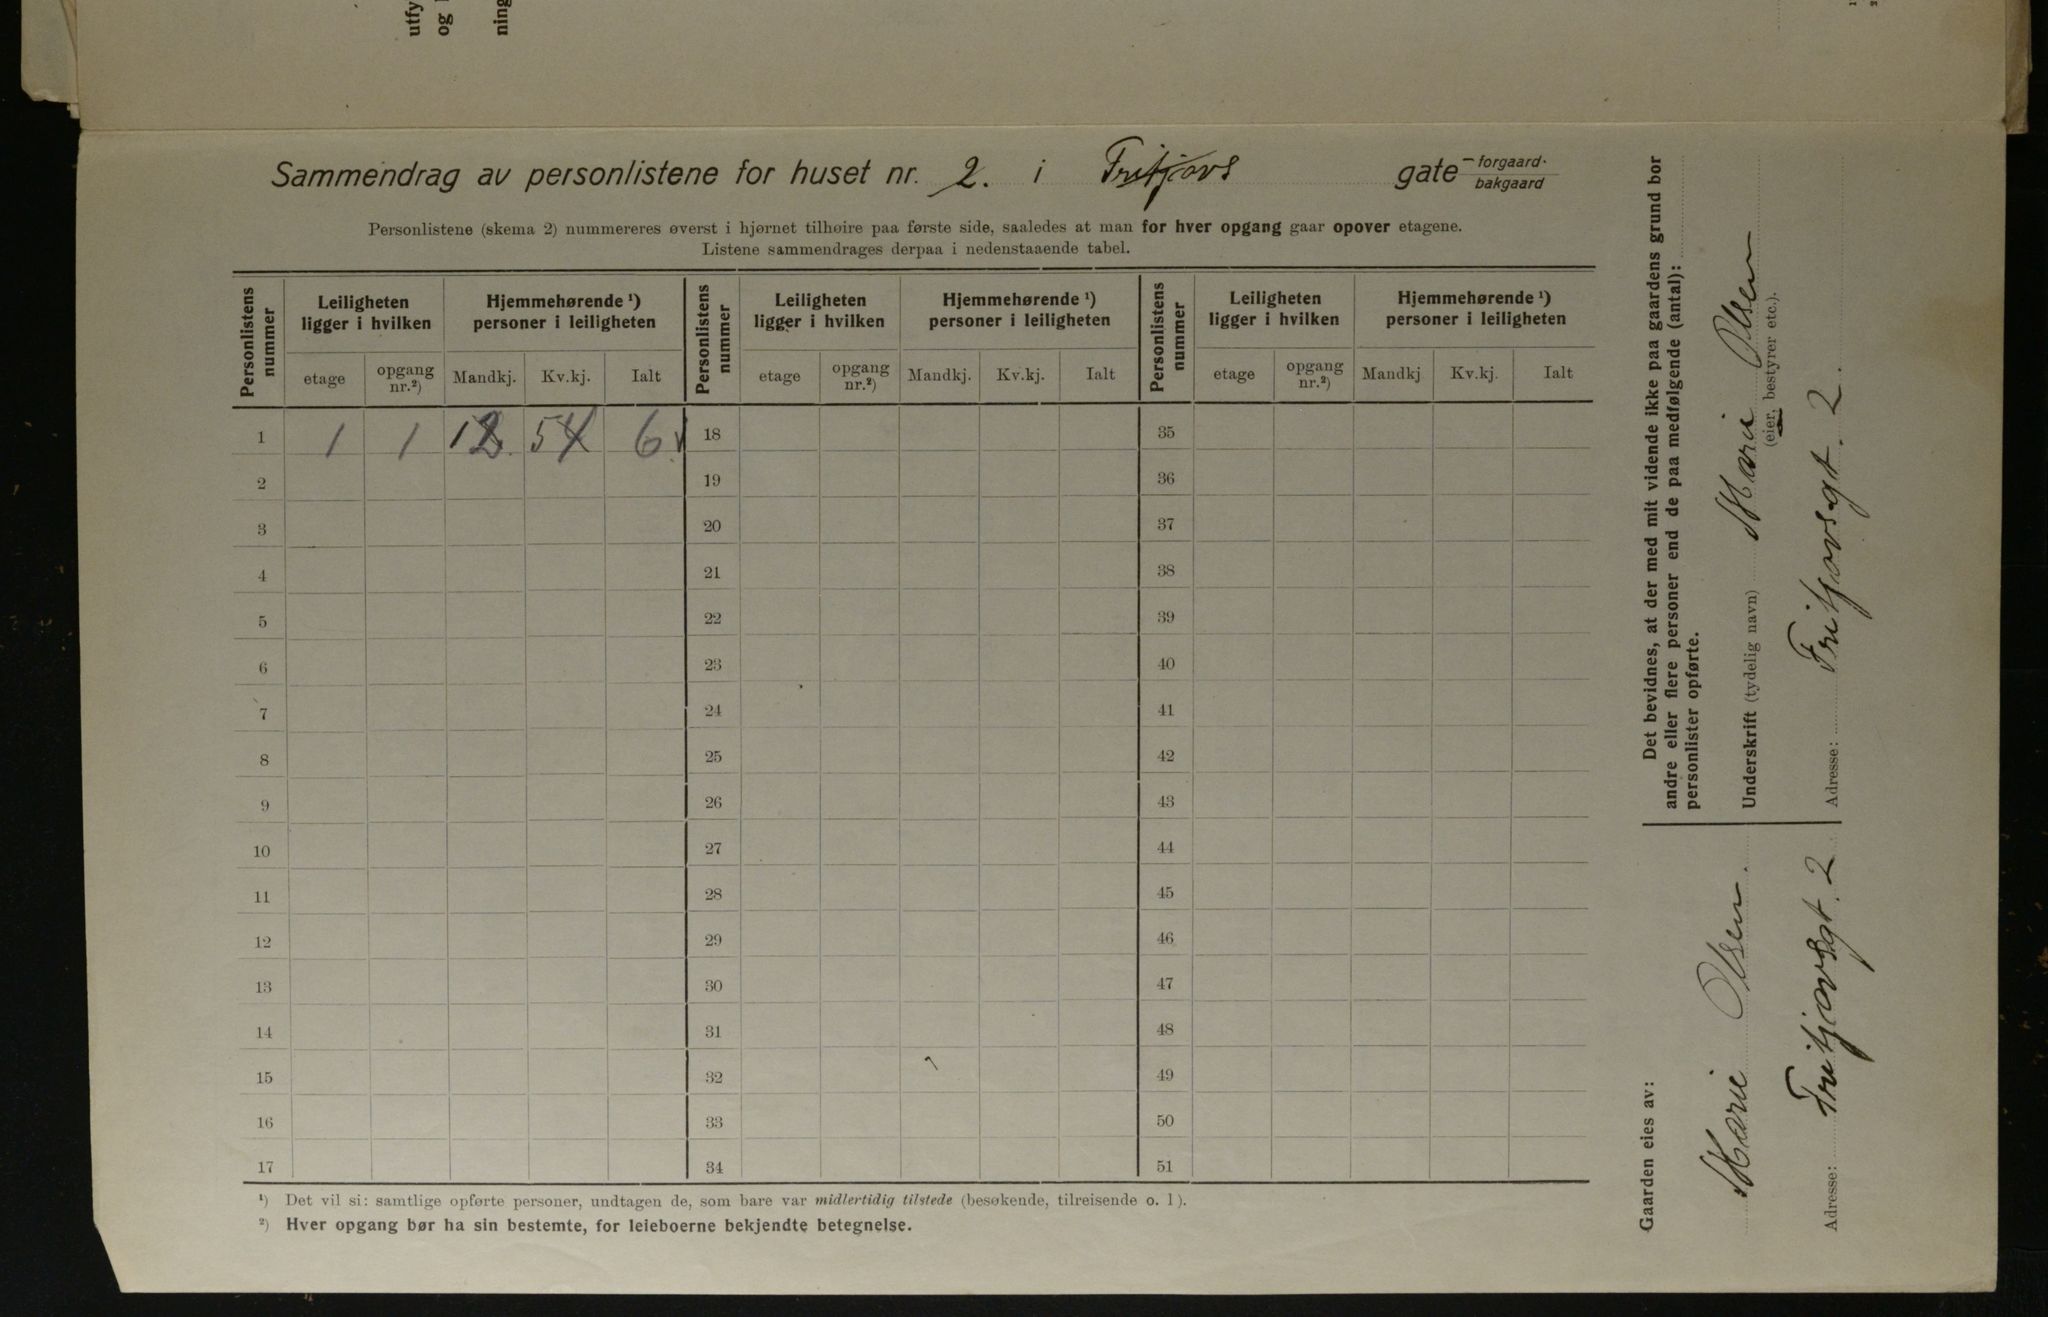 utfy
og
ning
Sammendrag av personlistene for huset nr. 2. i Fritjovs gate - forgaard. bakgaard
Personlistene (skema 2) nummereres øverst i hjørnet tilhøire paa første side, saaledes at man for hver opgang gaar opover etagene.
Listene sammendrages derpaa i nedenstaaende tabel.
Personlistens nummer Leiligheten ligger i hvilken Hjemmehørende ¹) personer i leiligheten Personlistens nummer Leiligheten ligger i hvilken Hjemmehørende ¹) personer i leiligheten Personlistens nummer Leiligheten ligger i hvilken Hjemmehørende ¹) personer i leiligheten
etage opgang nr.²) Mandkj. Kv.kj. Ialt etage opgang nr.²) Mandkj. Kv.kj. Ialt etage opgang nr.²) Mandkj Kv.kj. Ialt
1 1 1 1 2. 5 4 6 18 35
2 19 36
3 20 37
4 21 38
5 22 39
6 23 40
7 24 41
8 25 42
9 26 43
10 27 44
11 28 45
12 29 46
13 30 47
14 31 48
15 32 49
16 33 50
17 34 51
¹) Det vil si: samtlige opførte personer, undtagen de, som bare var midlertidig tilstede (besøkende, tilreisende o. l).
²) Hver opgang bør ha sin bestemte, for leieboerne bekjendte betegnelse.
Det bevidnes, at der med mit vidende ikke paa gaardens grund bor
andre eller flere personer end de paa medfølgende (antal):
personlister opførte.
Underskrift (tydelig navn) Marie Olsen
(eier, bestyrer etc.).
Adresse: Fritjovsgt. 2.
Gaarden eies av:
Marie Olsen.
Adresse: Fritjovsgt. 2